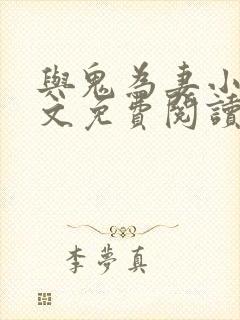 與鬼為妻小
文免費閱讀
李夢真